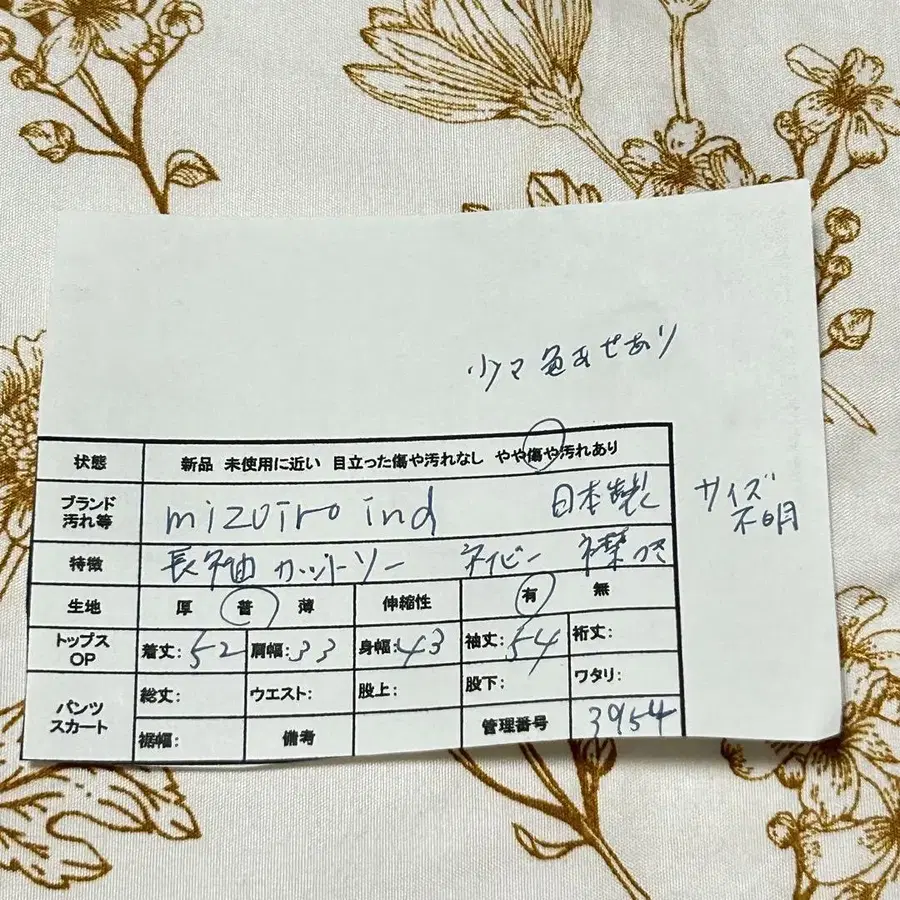 少々色あせあり
状態 新品 未使用に近い 目立った傷や汚れなし やや傷や汚れあり
ブランド 汚れ等 mizuiro ind 日本製
サイズ
不明
特徴 長袖カットソー ネイビー 襟つき
生地 厚 普 薄 伸縮性 有 無
トップス OP 着丈:52 肩幅:33 身幅:43 袖丈:54 裄丈:
パンツ スカート 総丈: ウエスト: 股上: 股下: ワタリ:
裾幅: 備考 管理番号 3954